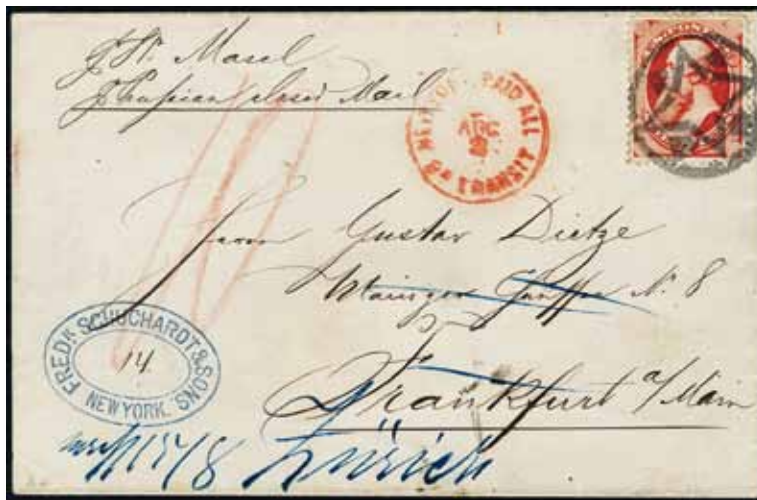 Prussian closed Mail
NEW YORK PAID ALL
AUG
TRANSIT
Herrn Gustav Dietze
Mainzer No. 8
Frankfurt a/Main
FREDK. SCHUCHARDT & SONS
14.
NEW YORK.
15/8 Zürich